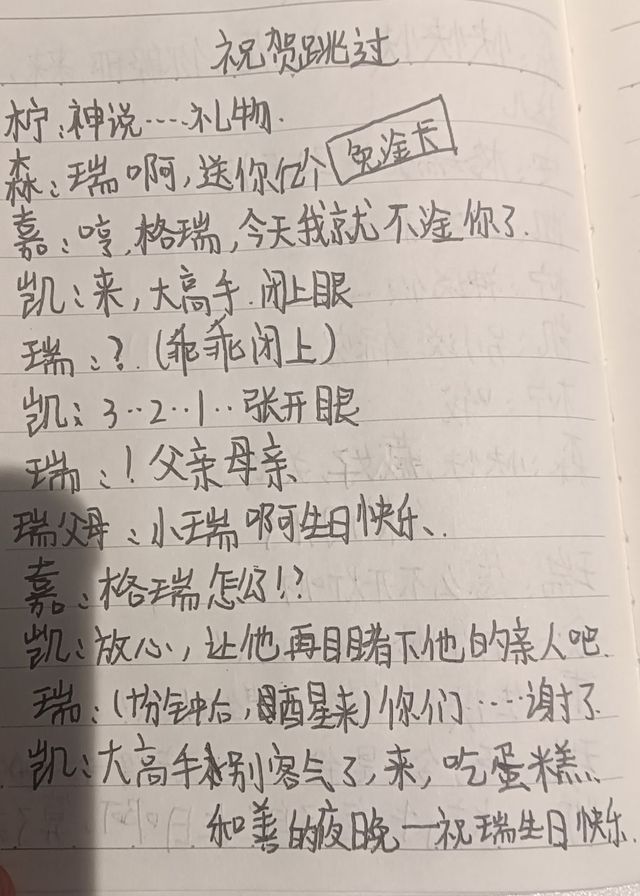 祝贺跳过
柠:神说……礼物.
森:瑞啊,送你亿个 免淦卡
嘉:哼,格瑞,今天我就不淦你了.
凯:来,大高手.闭上眼
瑞:?(乖乖闭上)
凯:3··2··1··张开眼
瑞:!父亲母亲
瑞父母:小瑞啊生日快乐、.
嘉:格瑞怎么了!?
凯:放心,让他再目睹下他的亲人吧.
瑞:(十分钟后,醒来)你们……谢了
凯:大高手别客气了,来,吃蛋糕、
和善的夜晚—祝瑞生日快乐.